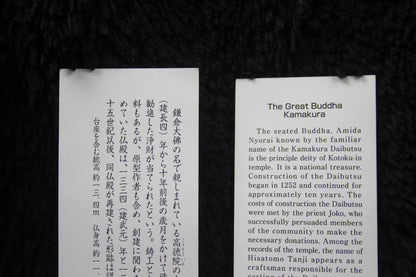 鎌倉大佛の名で親しまれている高徳院の
（建長四）年から十年前後の歳月をかけて
勧進した浄財が当てられたという。鋳工と
料もあるが、原型作者も含め、創建に関わ
めていた仏殿は、一三三四（建武元）年と一
十五世紀以後、同仏殿が再建された形跡は
台座を含む総高 約一三・四m 仏身高 約一一
The Great Buddha
Kamakura
The seated Buddha, Amida
Nyorai known by the familiar
name of the Kamakura Daibutsu
is the principle deity of Kotoku-in
temple. It is a national treasure.
Construction of the Daibutsu
began in 1252 and continued for
approximately ten years. The
costs of construction the Daibutsu
were met by the priest Joko, who
successfully persuaded members
of the community to make the
necessary donations. Among the
records of the temple, the name of
Hisatomo Tanji appears as a
craftsman responsible for the